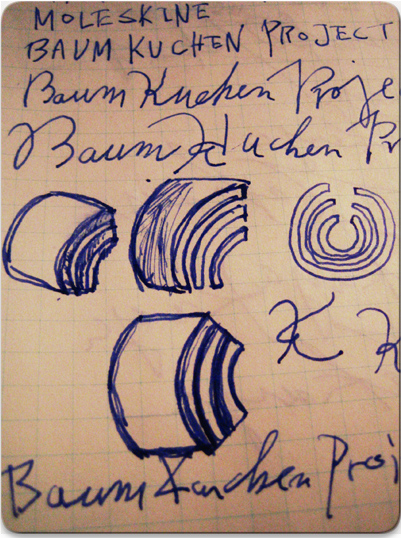 MOLESKINE
BAUM KUCHEN PROJECT
Baum Kuchen Proje
Baum Kuchen Pr
K K
Baum Kuchen Proj